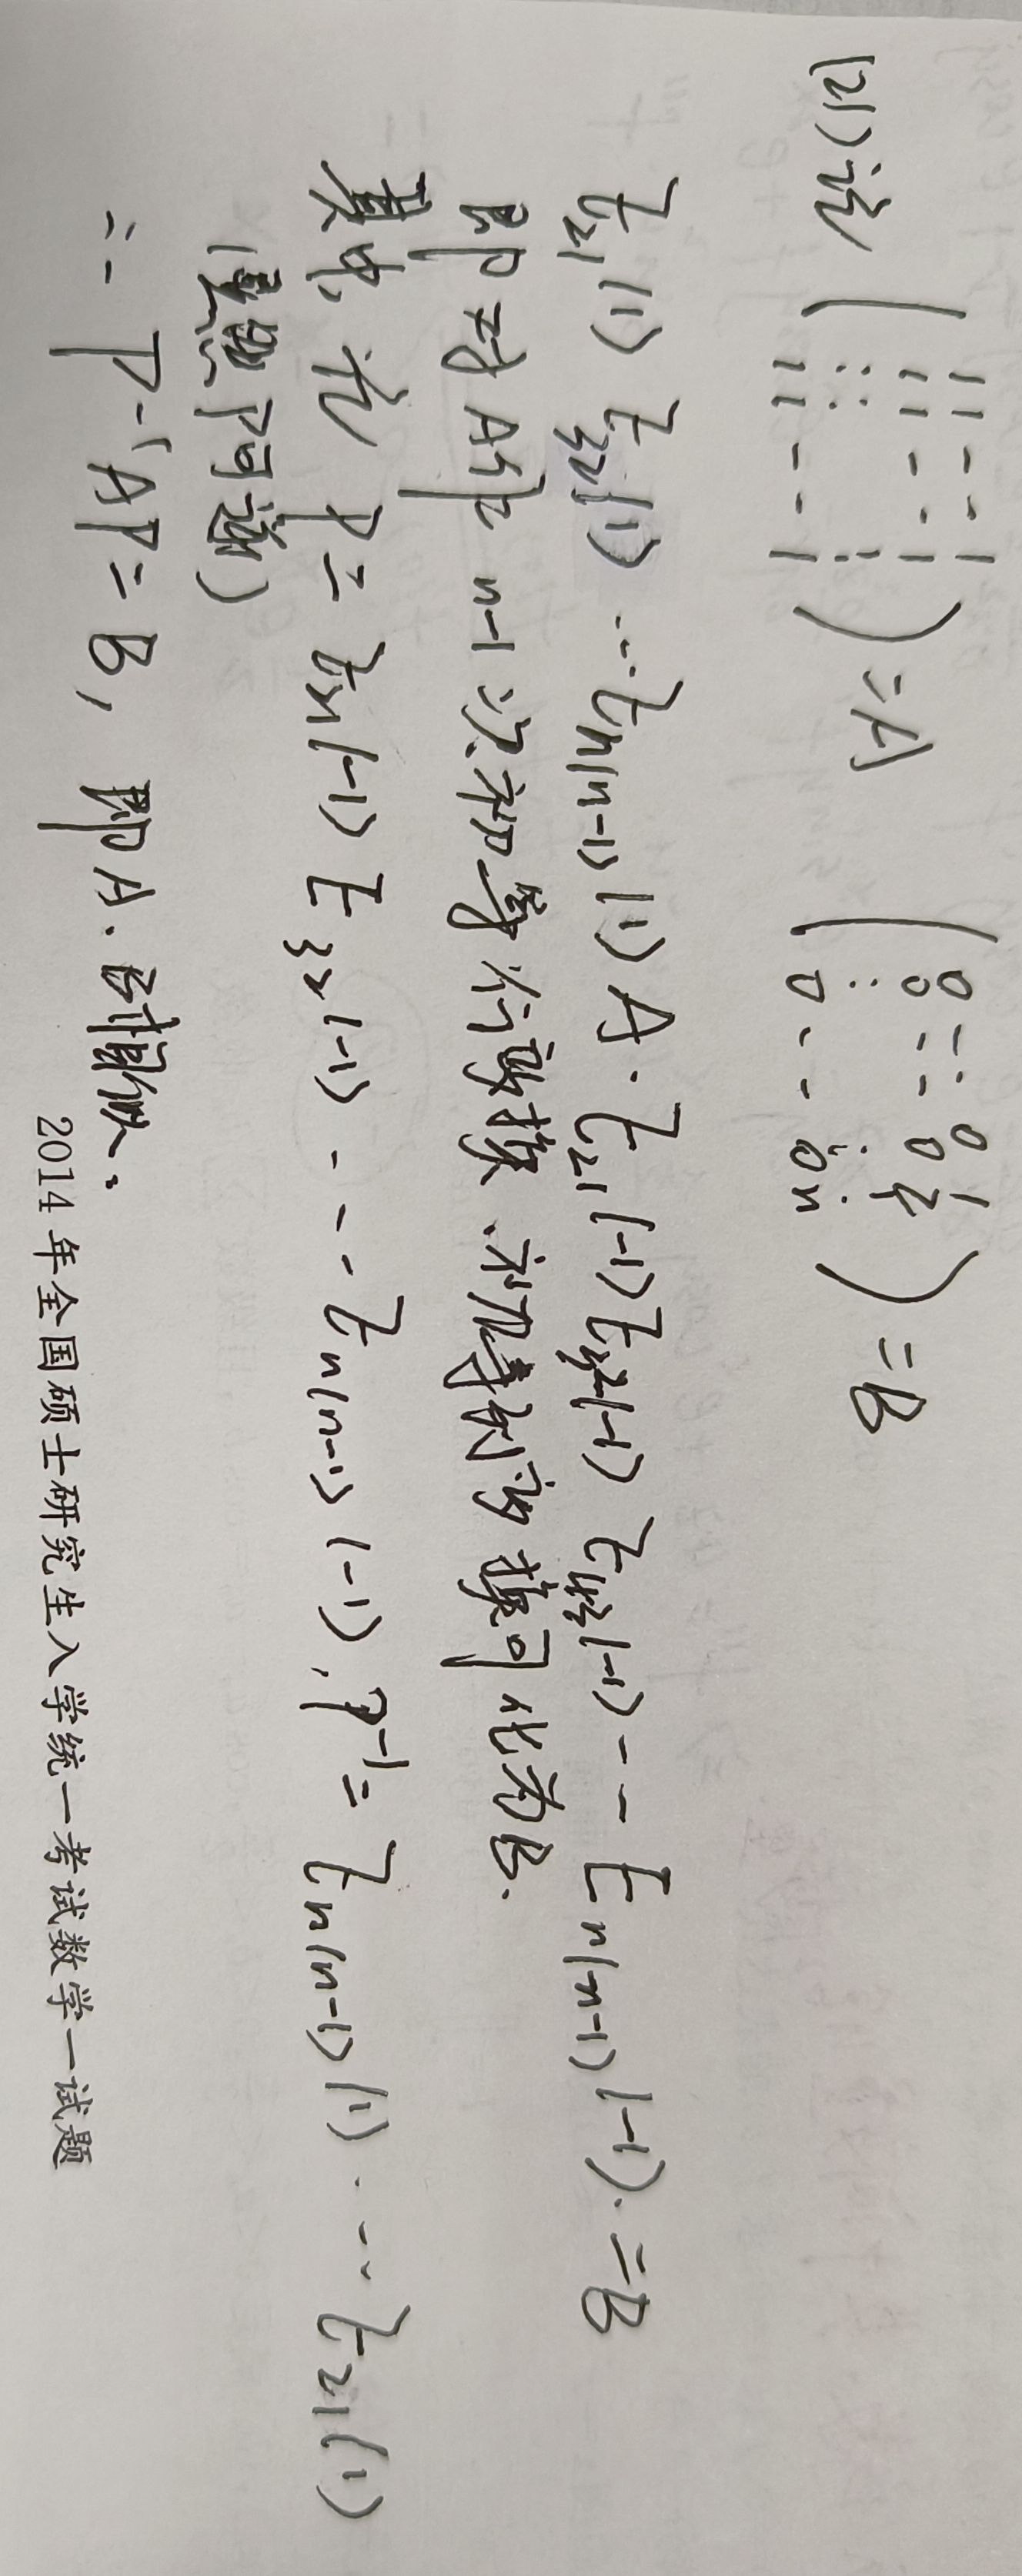 (21) 记 ( 1 1 - - 1
1 1 - - 1
⋮ ⋮ ⋮
1 1 - - 1 ) = A ( 0 - - 0 1
0 - - 0 2
⋮ ⋮ ⋮
0 - - 0 n ) = B
E21(1) E32(1) … En(n-1)(1) A · E21(-1) E32(-1) E43(-1) - - En(n-1)(-1) . = B
即对A作 n-1 次初等行变换、初等列变换可化为B.
其中, 记 P = E21(-1) E32(-1) - - - En(n-1)(-1), P⁻¹ = En(n-1)(1) … E21(1)
(显然 P可逆)
∴ P⁻¹AP = B, 即A.B相似.
2014 年全国硕士研究生入学统一考试数学一试题